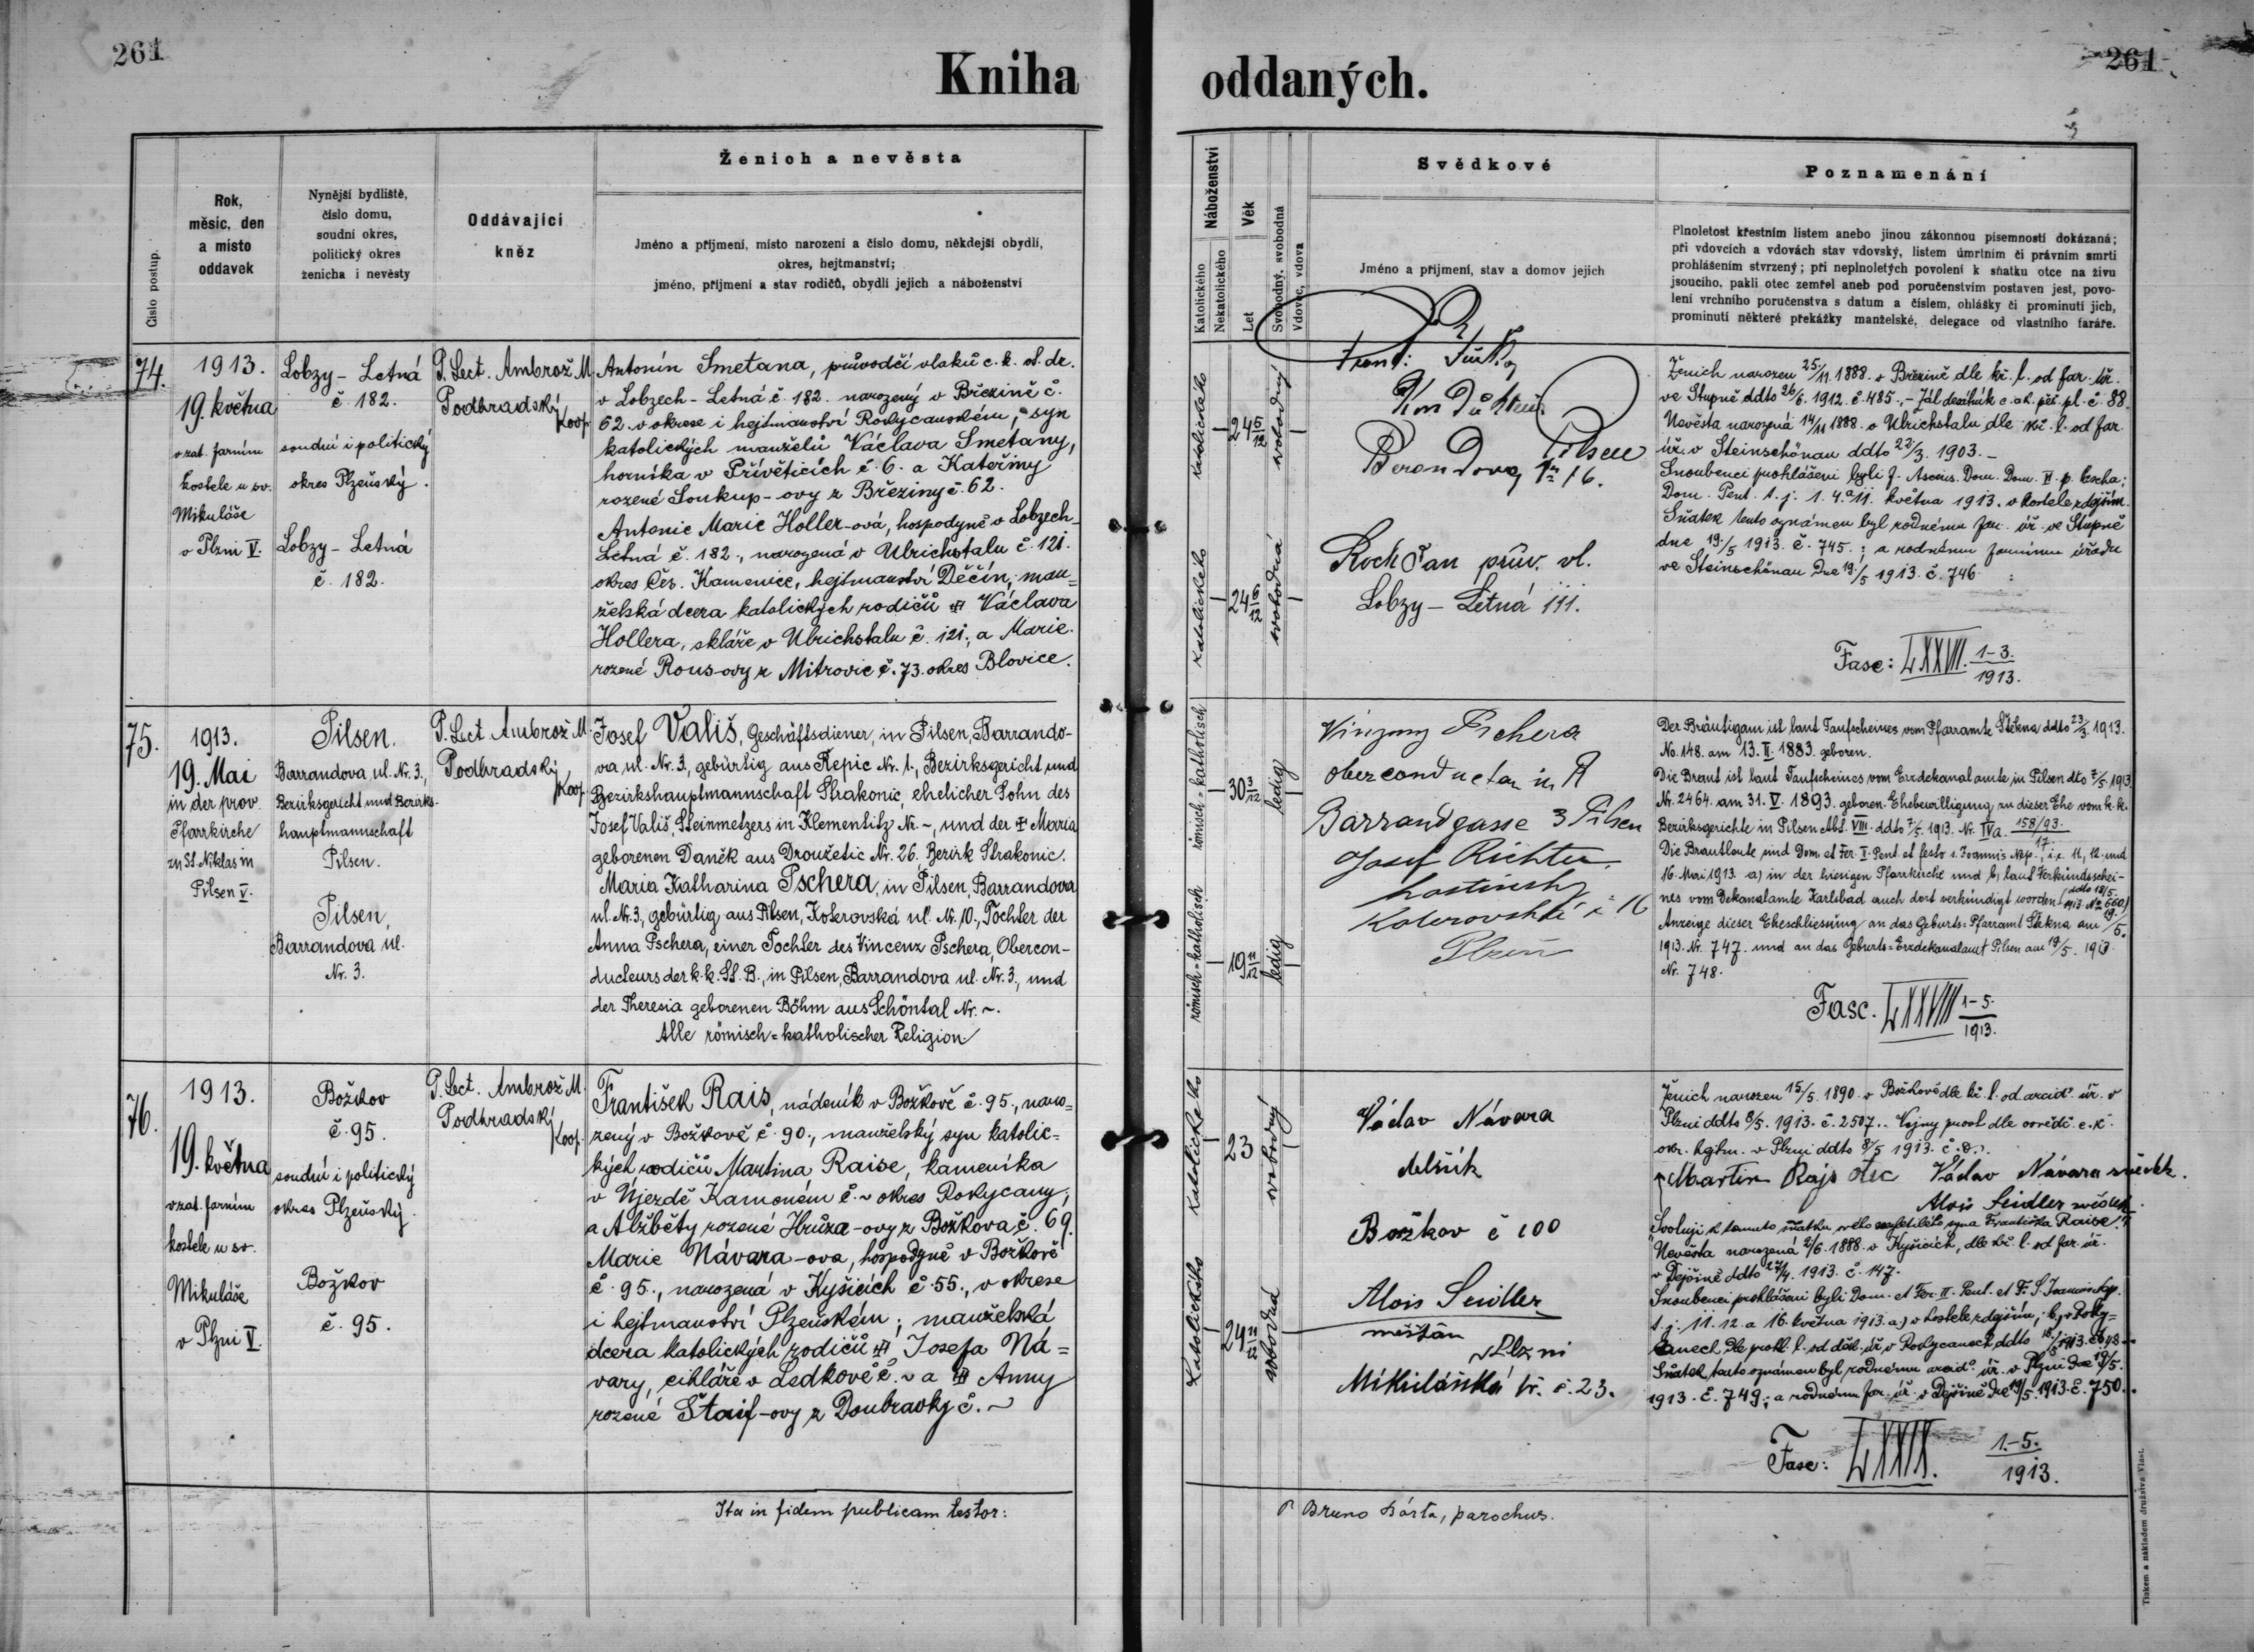 261
Kniha oddaných.
261
Číslo postup.
Rok,
měsíc, den
a místo
oddavek
Nynější bydliště,
číslo domu,
soudní okres,
politický okres
ženicha i nevěsty
Oddávající
kněz
Ženich a nevěsta
Jméno a příjmení, místo narození a číslo domu, někdejší obydlí,
okres, hejtmanství;
jméno, příjmení a stav rodičů, obydlí jejich a náboženství
Náboženství
Katolického
Nekatolického
Věk
Let
Svobodný, svobodná
Vdovec, vdova
Svědkové
Jméno a příjmení, stav a domov jejich
Poznamenání
Plnoletost křestním listem anebo jinou zákonnou písemností dokázaná;
při vdovcích a vdovách stav vdovský, listem úmrtním či právním smrti
prohlášením stvrzený; při neplnoletých povolení k sňatku otce na živu
jsoucího, pakli otec zemřel aneb pod poručenstvím postaven jest, povo-
lení vrchního poručenstva s datum a číslem, ohlášky či prominutí jich,
prominutí některé překážky manželské, delegace od vlastního faráře.
74.
1913.
19. května
v zat. farním
kostele u sv.
Mikuláše
v Plzni V.
Lobzy - Letná
č. 182.
soudní i politický
okres Plzeňský.
Lobzy - Letná
č. 182.
P. Lect. Ambrož M.
Podhradský
Koop.
Antonín Smetana, průvodčí vlaků c. k. st. dr.
v Lobzech - Letná č. 182. narozený v Březině č.
62. v okrese i hejtmanství Rokycanském, syn
katolických manželů Václava Smetany,
horníka v Přívěticích č. 6. a Kateřiny
rozené Soukup-ovy z Březiny č. 62.
Antonie Marie Holler-ová, hospodyně v Lobzech-
Letná č. 182., narozená v Ulrichstalu č. 121.
okres Čes. Kamenice, hejtmanství Děčín, man=
želská dcera katolických rodičů Václava
Hollera, skláře v Ulrichstalu č. 121. a Marie
rozené Rous-ovy z Mitrovic č. 73. okres Blovice.
katolického
24 6/12
svobodný
katolického
24 6/12
svobodná
Frant.
Kondukteur
Pilsen
No 16.
Roch Jan prův. vl.
Lobzy - Letná 111.
Ženich narozen 25/11 1888. v Březině dle kř. l. od far. úř.
ve Stupně ddto 26/6. 1912. č. 485.
Nevěsta narozená 14/11 1888. v Ulrichstalu dle kř. l. od far.
úř. v Steinschönau ddto 22/3. 1903. -
Snoubenci prohlášeni byli
Dom. Pent. t. j. 1. 4. a 11. května 1913. v kostele zdejším.
Sňatek tento oznámen byl rodnému far. úř. ve Stupně
dne 19/5 1913. č. 745.; a rodnému farnímu úřadu
ve Steinschönau dne 19/5 1913. č. 746.
Fasc: LXXVII. 1-3.
1913.
75.
1913.
19. Mai
in der prov.
Pfarrkirche
zu St. Niklas in
Pilsen V.
Pilsen.
Barrandova ul. Nr. 3.,
Bezirksgericht und Bezirks-
hauptmannschaft
Pilsen.
Pilsen,
Barrandova ul.
Nr. 3.
P. Lect. Ambrož M.
Podhradský
Koop.
Josef Vališ, Geschäftsdiener, in Pilsen, Barrando-
va ul. Nr. 3, gebürtig aus Řepic Nr. 1., Bezirksgericht und
Bezirkshauptmannschaft Strakonic, ehelicher Sohn des
Josef Vališ, Steinmetzers in Klementitz Nr. -, und der Maria
geborenen Daněk aus Droužetic Nr. 26. Bezirk Strakonic.
Maria Katharina Pschera, in Pilsen, Barrandova
ul. Nr. 3, gebürtig aus Pilsen, Koterovská ul. Nr. 10., Tochter der
Anna Pschera, einer Tochter des Vincenz Pschera, Obercon-
ducteurs der k. k. St. B., in Pilsen, Barrandova ul. Nr. 3., und
der Theresia geborenen Böhm aus Schöntal Nr. ~.
Alle römisch=katholischer Religion
römisch=katholisch
30 3/12
ledig
römisch=katholisch
19 11/12
ledig
Pschera
oberconducteur in R
Barrandgasse 3 Pilsen
Josef Richter
Plzeň
Der Bräutigam ist laut Taufscheines vom Pfarramte Štěkna ddto 23/3. 1913.
No. 148. am 13. II. 1883. geboren.
Die Braut ist laut Taufscheines vom Erzdekanalamte in Pilsen dto 7/5 1913
Nr. 2464. am 31. V. 1893. geboren. Ehebewilligung zu dieser Ehe vom k. k.
Bezirksgerichte in Pilsen Abt. VIII. ddto 7/5. 1913. Nr. IVa. 158/93.
17.
Die Brautleute sind Dom. et Fer. II. Pent. et festo s. Joannis Nep., i. e. 11., 12. und
16. Mai 1913 a) in der hiesigen Pfarrkirche und b) laut Verkündschei-
nes vom Dekanalamte Karlsbad auch dort verkündigt worden
Anzeige dieser Eheschliessung an das Geburts=Pfarramt Štěkna am 19/5.
1913. Nr. 747. und an das Geburts=Erzdekanalamt Pilsen am 19/5. 1913
Nr. 748.
Fasc. LXXVIII 1-5.
1913.
76.
1913.
19. května
v zat. farním
kostele u sv.
Mikuláše
v Plzni V.
Božkov
č. 95.
soudní i politický
okres Plzeňský.
Božkov
č. 95.
P. Lect. Ambrož M.
Podhradský
Koop.
František Rais, nádeník v Božkově č. 95., naro=
zený v Božkově č. 90., manželský syn katolic=
kých rodičů Martina Raise, kameníka
v Újezdě Kamenném č. ~ okres Rokycany,
a Alžběty rozené Hrůza-ovy z Božkova č. 69.
Marie Návara-ova, hospodyně v Božkově
č. 95., narozená v Kyšicích č. 55., v okrese
i hejtmanství Plzeňském; manželská
dcera katolických rodičů Josefa Ná=
vary, cihláře v Ledkově č. ~ a Anny
rozené Štaif-ovy z Doubravky č. ~
Katolického
23
svobodný
Katolického
24 11/12
svobodná
Václav Návara
dělník
Božkov č 100
Alois Seidler
měšťan
v Plzni
Mikulášská tř. č. 23.
Ženich narozen 15/5. 1890. v Božkově dle kř. l. od arcid. úř. v
Plzni ddto 8/5. 1913. č. 2507.. Vojny prost dle osvědč. c. k.
okr. hejtm. v Plzni ddto 8/5 1913.
Martin Rajs otec Václav Návara svědek.
Alois Seidler svědek.
Svoluji k tomuto sňatku svého nezletilého syna Františka Raise.
Nevěsta narozená 2/6. 1888. v Kyšicích, dle kř. l. od far. úř.
v Dejšině ddto 27/4. 1913. č. 147.
Snoubenci prohlášeni byli Dom. et Fer. II. Pent. et F. S. Joannis Nep.
t. j. 11. 12. a 16. května 1913. a) v kostele zdejším, b) v Roky=
canech dle prohl. l. od děk. úř. v Rokycanech ddto
Sňatek tento oznámen byl rodnému arcid. úř. v Plzni dne 19/5.
1913. č. 749.; a rodnému far. úř. v Dejšině dne 19/5. 1913. č. 750.
Fasc: LXXIX. 1-5.
1913.
Ita in fidem publicam testor:
P. Bruno Bárta, parochus.
Tiskem a nákladem družstva Vlast.